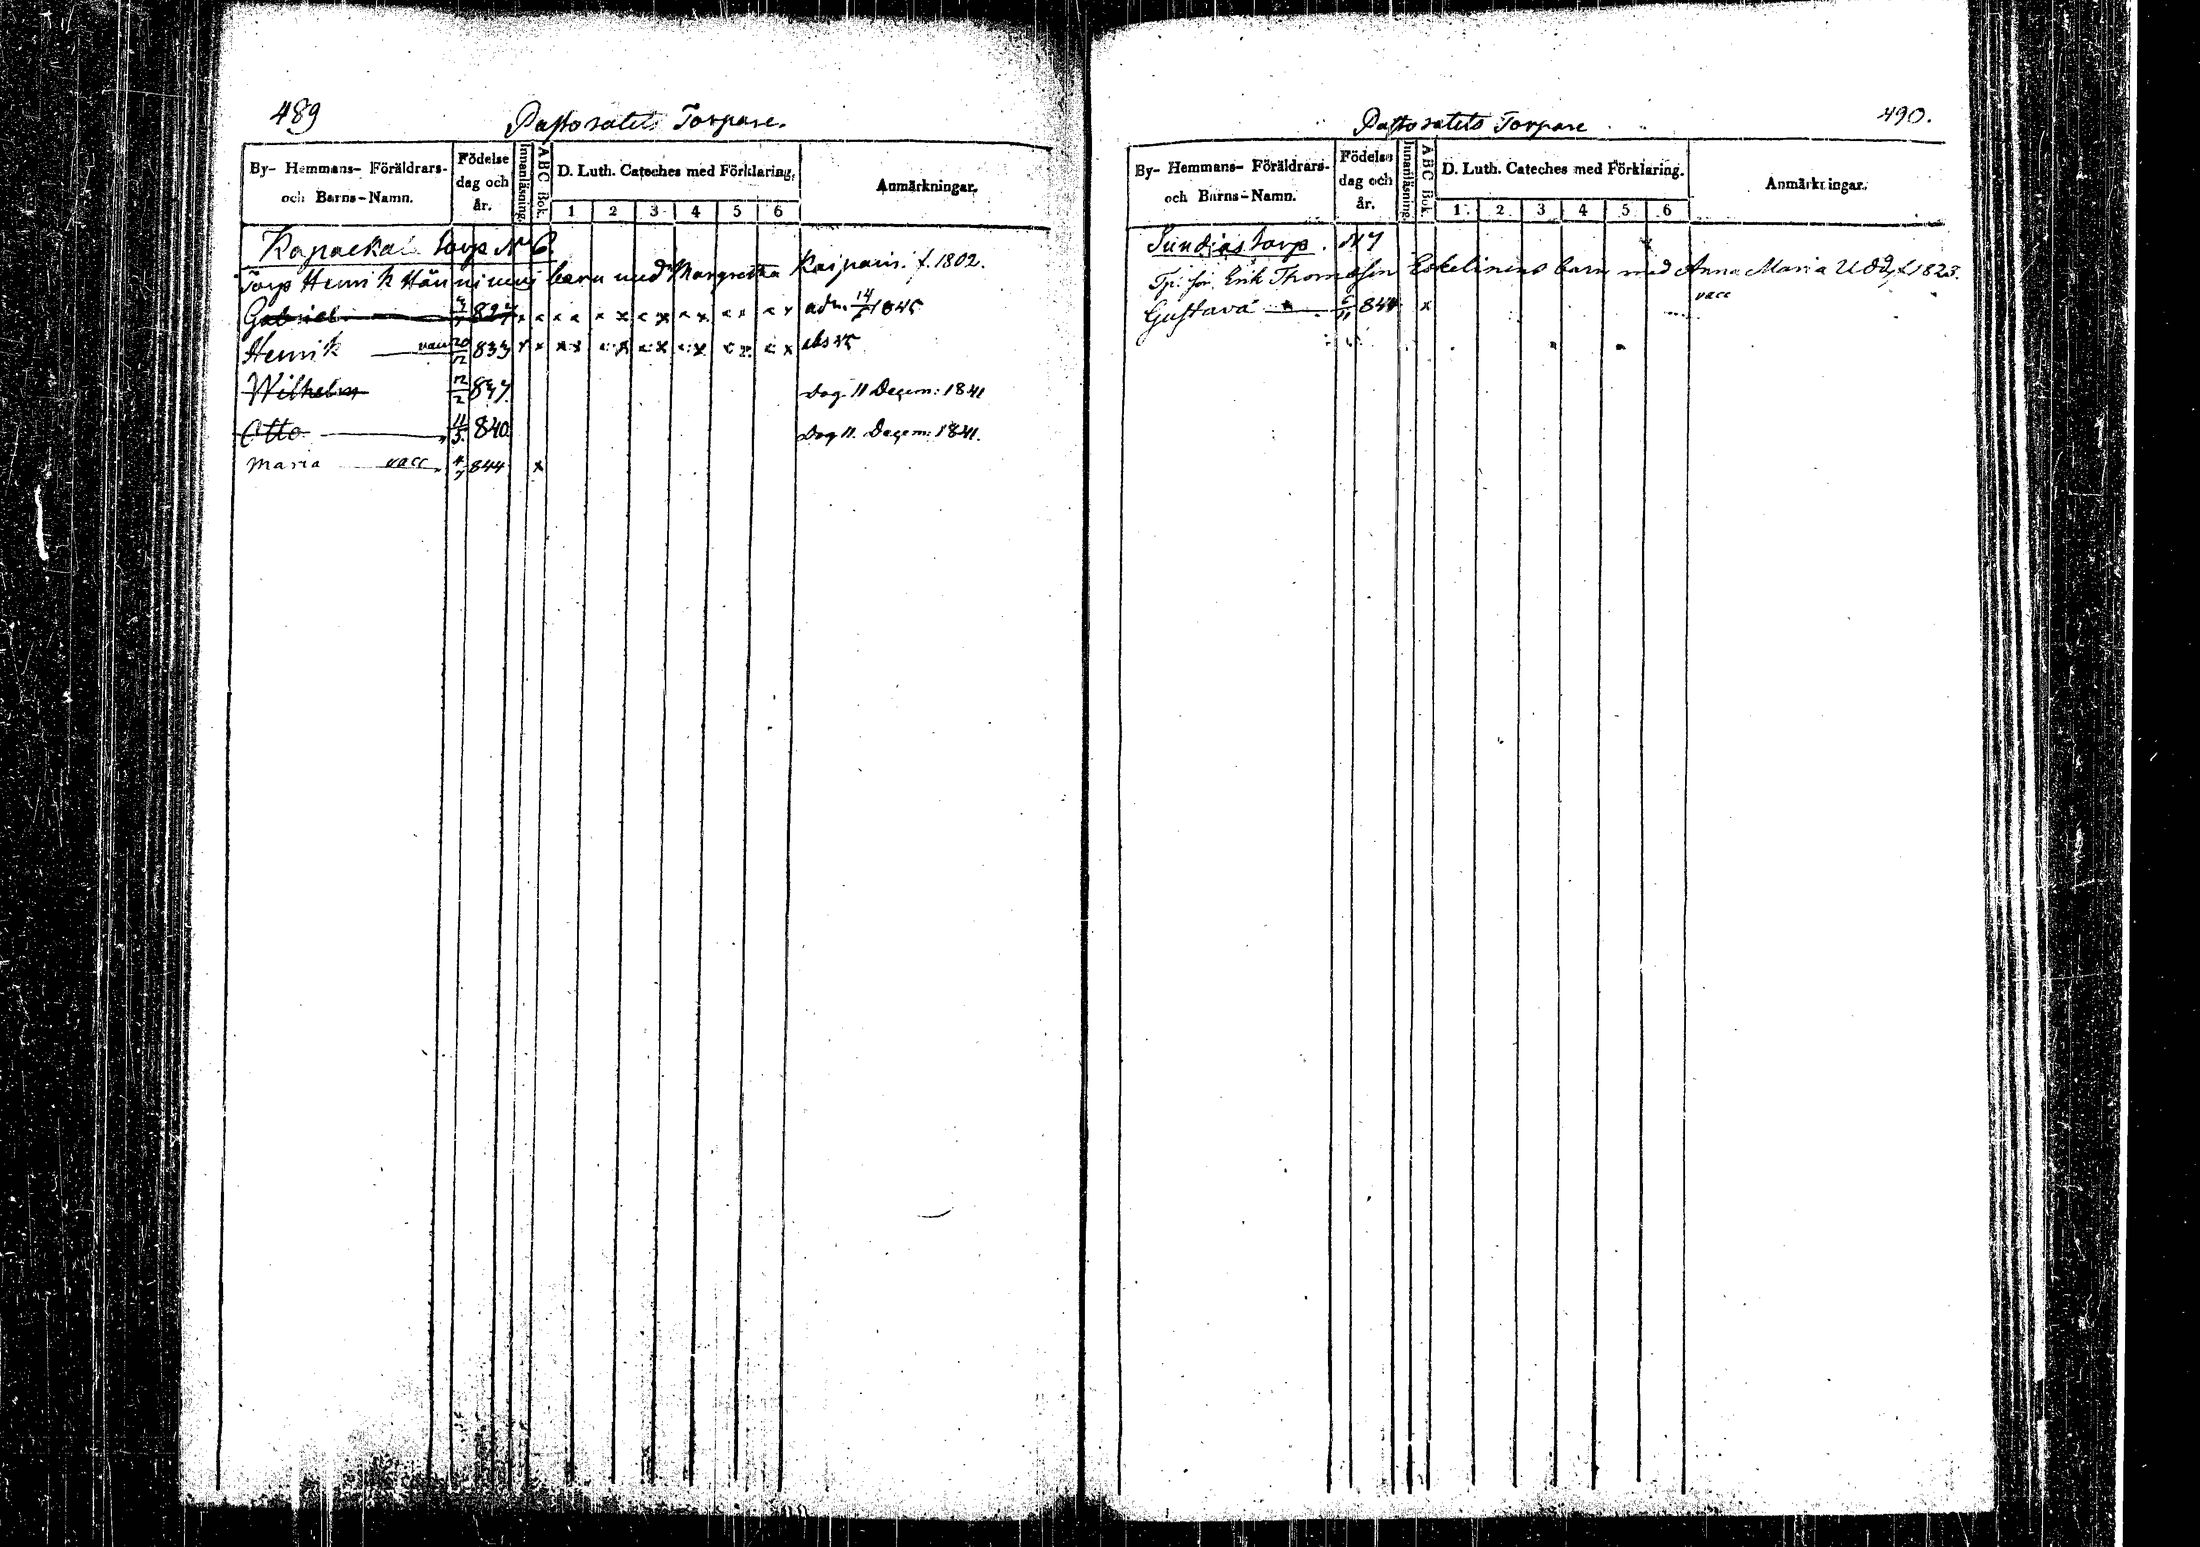 489
Pastoratets Torpare.
By- Hemmans- Föräldrars- och Barns-Namn.
Födelse dag och år.
Innanläsning.
ABC Bok.
D. Luth. Cateches med Förklaring.
1 2 3 4 5 6
Anmärkningar.
torp N 6
Torp Henrik Hänninens barn med Margretha Kaipain. f. 1802.
Gabriel 827 x adm. 1845
Henrik vacc 20/12 833 x x
Wilhelm 12/2 837 Dog 11 Decem: 1841
Otto 11/5 840 Dog 11. Decem: 1841.
Maria vacc 4/7 844 x
490.
Pastoratets Torpare
By- Hemmans- Föräldrars- och Barns-Namn.
Födelse dag och år.
Innanläsning.
ABC Bok.
D. Luth. Cateches med Förklaring.
1 2 3 4 5 6
Anmärkningar.
torp. N 7
Erik Thomasson Eskelinens barn med Anna Maria Udd, f. 1823.
Gustava 844 x vacc